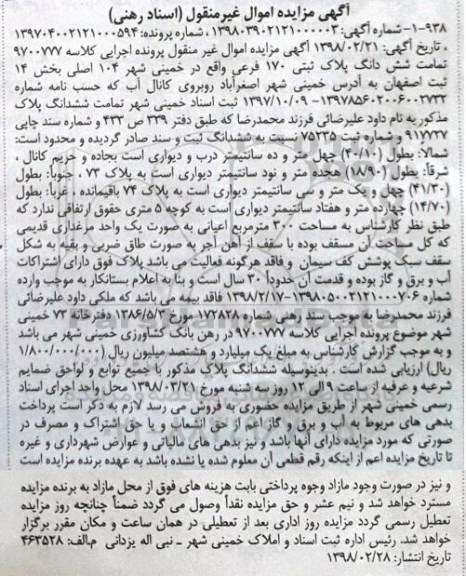 آگهی مزایده اموال غیرمنقول (اسناد رهنی)
۱-۹۳۸-شماره آگهی: ۱۳۹۸۰۳۹۰۲۱۲۱۰۰۰۰۰۳، شماره پرونده: ۱۳۹۷۰۴۰۰۲۱۲۱۰۰۰۵۹۴
، تاریخ آگهی: ۱۳۹۸/۰۲/۲۱ آگهی مزایده اموال غیر منقول پرونده اجرایی کلاسه ۹۷۰۰۷۷۷
تمامت شش دانگ پلاک ثبتی ۱۷۰ فرعی واقع در خمینی شهر ۱۰۴ اصلی بخش ۱۴
ثبت اصفهان به آدرس خمینی شهر اصغرآباد روبروی کانال آب که حسب نامه شماره
۱۳۹۷۸۵۶۰۲۰۰۶۰۰۳۷۳۲- ۱۳۹۷/۱۰/۰۹ ثبت اسناد خمینی شهر تمامت ششدانگ پلاک
مذکور به نام داود علیرضائی فرزند محمدرضا که طبق دفتر ۳۳۹ ص ۴۳۳ و شماره سند چاپی
۹۱۷۷۳۷ و شماره ثبت ۷۵۲۳۵ نسبت به ششدانگ ثبت و سند صادر گردیده و محدود است:
شمالا: بطول (۴۰/۱۰) چهل متر و ده سانتیمتر درب و دیواری است بجاده و حریم کانال ،
شرقاً: بطول (۱۸/۹۰) هجده متر و نود سانتیمتر دیواری است به پلاک ۷۳ ، جنوباً: بطول
(۴۱/۳۰) چهل و یک متر و سی سانتیمتر دیواری است به پلاک ۷۴ باقیمانده ، غرباً: بطول
(۱۴/۷۰) چهارده متر و هفتاد سانتیمتر دیواری است به کوچه ۵ متری حقوق ارتفاقی ندارد که
طبق نظر کارشناس به مساحت ۳۰۰ مترمربع اعیانی به صورت یک واحد مرغداری قدیمی
که کل مساحت آن مسقف بوده با سقف از آهن آجر به صورت طاق ضربی و بقیه به شکل
سقف سبک پوشش کف سیمان و فاقد هرگونه فعالیت می باشد پلاک فوق دارای اشتراکات
آب و برق و گاز بوده و قدمت آن حدوداً ۳۰ سال است و بنا به اعلام بستانکار به موجب وارده
شماره ۱۳۹۸۰۵۰۰۲۱۲۱۰۰۰۷۰۶-۱۳۹۸/۲/۱۷ فاقد بیمه می باشد که ملکی داود علیرضائی
فرزند محمدرضا به موجب سند رهنی شماره ۱۷۲۸۲۸ مورخ ۱۳۸۶/۵/۳ دفترخانه ۷۳ خمینی
شهر موضوع پرونده اجرایی کلاسه ۹۷۰۰۷۷۷ در رهن بانک کشاورزی خمینی شهر می باشد
و به موجب گزارش کارشناس به مبلغ یک میلیارد و هشتصد میلیون ریال (۱/۸۰۰/۰۰۰/۰۰۰
ریال) ارزیابی شده است . بدینوسیله ششدانگ پلاک مذکور با جمیع توابع و لواحق ضمایم
شرعیه و عرفیه از ساعت ۹ الی ۱۲ روز سه شنبه مورخ ۱۳۹۸/۰۳/۲۱ محل واحد اجرای اسناد
رسمی خمینی شهر از طریق مزایده حضوری به فروش می رسد لازم به ذکر است پرداخت
بدهی های مربوط به آب و برق و گاز اعم از حق انشعاب و یا حق اشتراک و مصرف در
صورتی که مورد مزایده دارای آنها باشد و نیز بدهی های مالیاتی و عوارض شهرداری و غیره
تا تاریخ مزایده اعم از اینکه رقم قطعی آن معلوم شده یا نشده باشد به عهده برنده مزایده است
و نیز در صورت وجود مازاد وجوه پرداختی بابت هزینه های فوق از محل مازاد به برنده مزایده
مسترد خواهد شد و نیم عشر و حق مزایده نقداً وصول می گردد ضمناً چنانچه روز مزایده
تعطیل رسمی گردد مزایده روز اداری بعد از تعطیلی در همان ساعت و مکان مقرر برگزار
خواهد شد. رئیس اداره ثبت اسناد و املاک خمینی شهر - نبی اله یزدانی م.الف: ۴۶۳۵۲۸
تاریخ انتشار: ۱۳۹۸/۰۲/۲۸